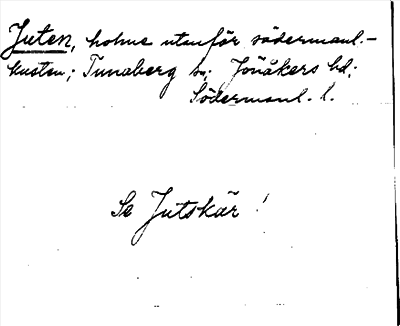 Juten, holme utanför södermanl.-
kusten; Tunaberg sn; Jönåkers hd;
Södermanl. l.
Se Jutskär!